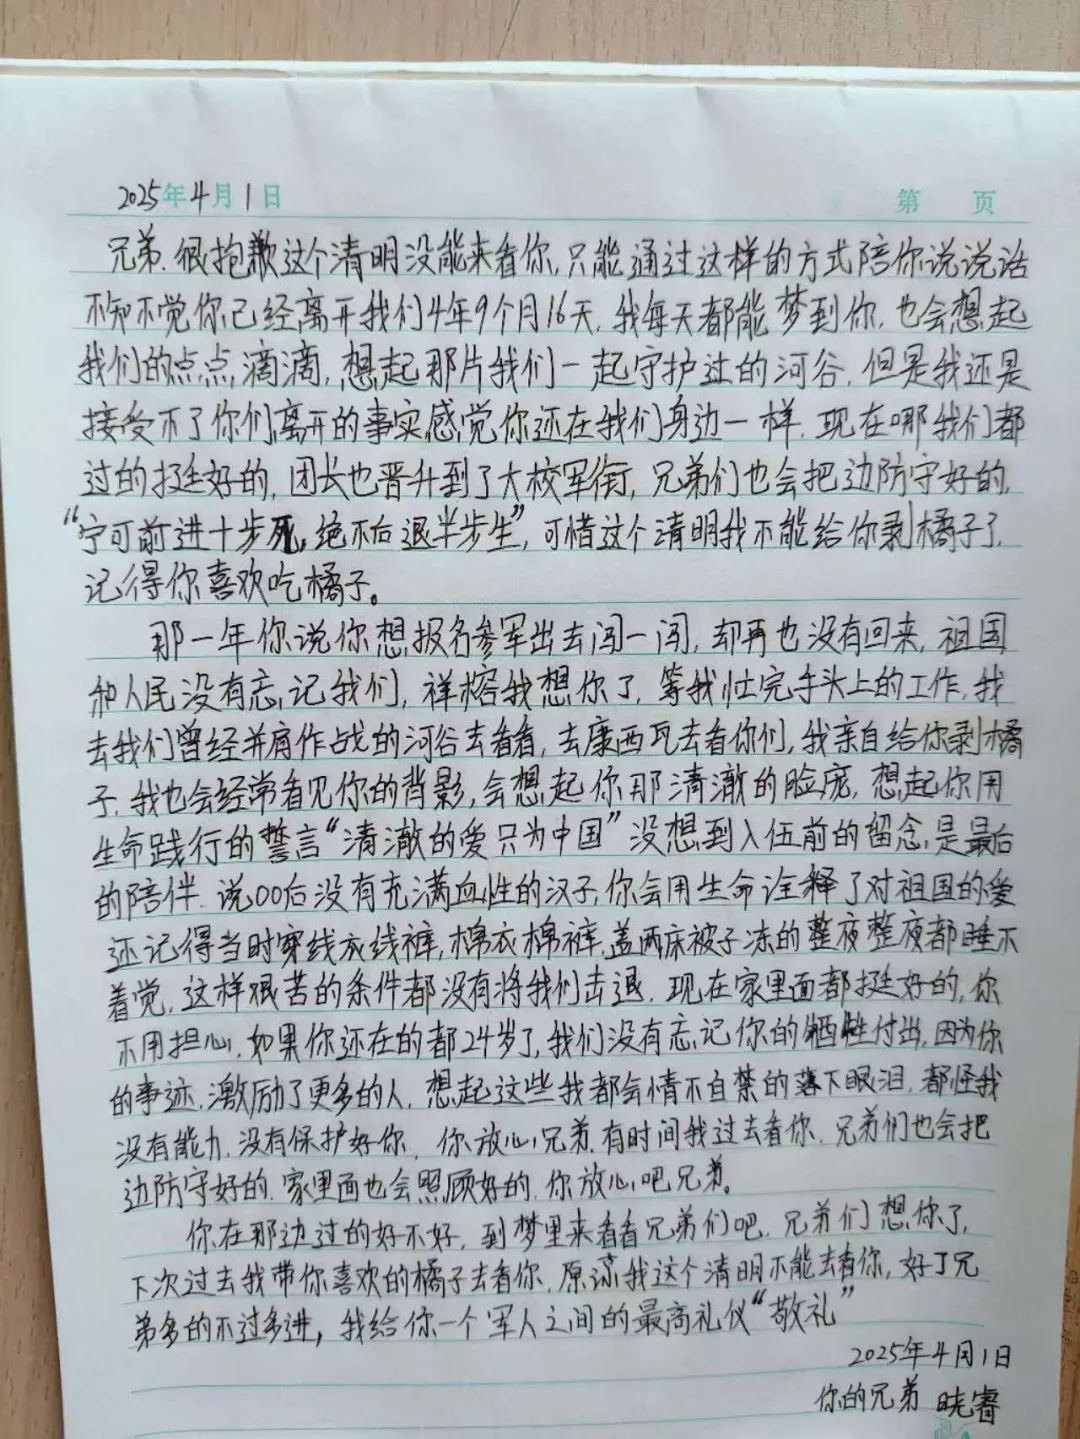 2025年4月1日 第 页
兄弟.很抱歉这个清明没能来看你,只能通过这样的方式陪你说说话
不知不觉你已经离开我们4年9个月16天,我每天都能梦到你.也会想起
我们的点点滴滴,想起那片我们一起守护过的河谷,但是我还是
接受不了你们离开的事实感觉你还在我们身边一样.现在哪我们都
过的挺好的,团长也晋升到了大校军衔,兄弟们也会把边防守好的,
“宁可前进十步死,绝不后退半步生”,可惜这个清明我不能给你剥橘子了,
记得你喜欢吃橘子。
那一年你说你想报名参军出去闯一闯,却再也没有回来,祖国
和人民没有忘记我们,祥榕我想你了,等我忙完手头上的工作,我
去我们曾经并肩作战的河谷去看看,去康西瓦去看你们,我亲自给你剥橘
子,我也会经常看见你的背影,会想起你那清澈的脸庞,想起你用
生命践行的誓言“清澈的爱只为中国”没想到入伍前的留念,是最后
的陪伴.说00后没有充满血性的汉子,你会用生命诠释了对祖国的爱
还记得当时穿线衣线裤,棉衣棉裤,盖两床被子冻的整夜整夜都睡不
着觉,这样艰苦的条件都没有将我们击退.现在家里面都挺好的,你
不用担心,如果你还在的都24岁了,我们没有忘记你的牺牲付出,因为你
的事迹,激励了更多的人,想起这些我都会情不自禁的落下眼泪,都怪我
没有能力,没有保护好你, 你放心兄弟.有时间我过去看你.兄弟们也会把
边防守好的.家里面也会照顾好的.你放心吧兄弟。
你在那边过的好不好,到梦里来看看兄弟们吧.兄弟们想你了,
下次过去我带你喜欢的橘子去看你.原谅我这个清明不能去看你,好了兄
弟多的不过多进,我给你一个军人之间的最高礼仪“敬礼”
2025年4月1日
你的兄弟 晓睿